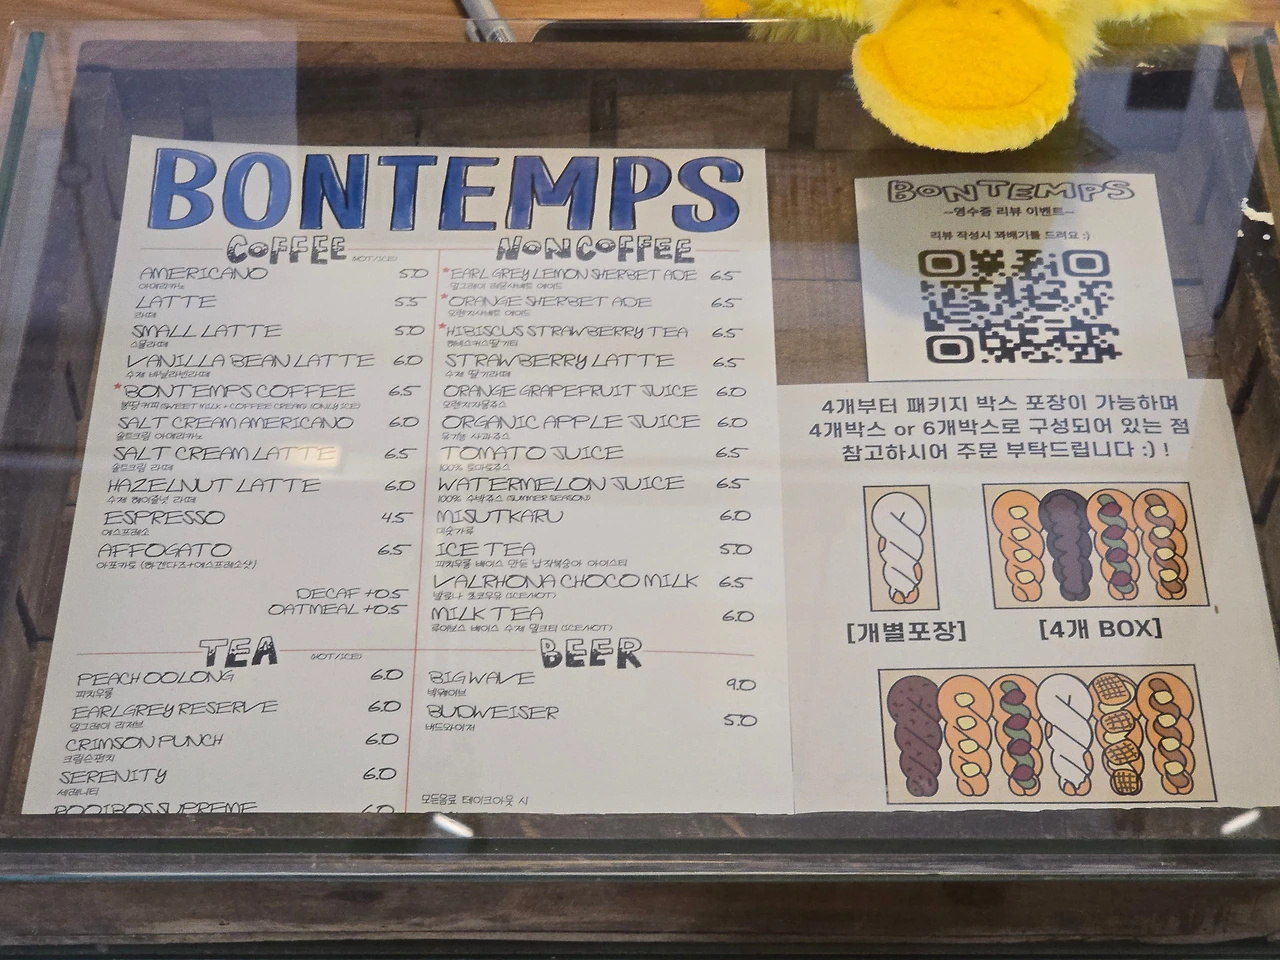 BONTEMPS
COFFEE (HOT/ICE)
AMERICANO 5.0
아메리카노
LATTE 5.5
라떼
SMALL LATTE 5.0
스몰라떼
VANILLA BEAN LATTE 6.0
수제 바닐라빈라떼
*BONTEMPS COFFEE 6.5
봉땅커피 (SWEET MILK + COFFEE CREAM) (ONLY ICE)
SALT CREAM AMERICANO 6.0
솔트크림 아메리카노
SALT CREAM LATTE 6.5
솔트크림 라떼
HAZELNUT LATTE 6.0
수제 헤이즐넛 라떼
ESPRESSO 4.5
에스프레소
AFFOGATO 6.5
아포카토 (하겐다즈+에스프레소샷)
DECAF +0.5
OATMEAL +0.5
TEA (HOT/ICE)
PEACH OOLONG 6.0
피치우롱
EARLGREY RESERVE 6.0
얼그레이 리저브
CRIMSON PUNCH 6.0
크림슨펀치
SERENITY 6.0
세레니티
ROOIBOS SUPREME 6.0
NONCOFFEE
*EARL GREY LEMON SHERBET ADE 6.5
얼그레이 레몬샤베트 에이드
*ORANGE SHERBET ADE 6.5
오렌지샤베트 에이드
*HIBISCUS STRAWBERRY TEA 6.5
히비스커스딸기티
STRAWBERRY LATTE 6.5
수제 딸기라떼
ORANGE GRAPEFRUIT JUICE 6.0
오렌지자몽쥬스
ORGANIC APPLE JUICE 6.0
유기농 사과쥬스
TOMATO JUICE 6.5
100% 토마토쥬스
WATERMELON JUICE 6.5
100% 수박쥬스 (SUMMER SEASON)
MISUTKARU 6.0
미숫가루
ICE TEA 5.0
피치우롱 베이스 만든 납작복숭아 아이스티
VALRHONA CHOCO MILK 6.5
발로나 초코우유 (ICE/HOT)
MILK TEA 6.0
루이보스 베이스 수제 밀크티 (ICE/HOT)
BEER
BIGWAVE 9.0
빅웨이브
BUDWEISER 5.0
버드와이저
모든음료 테이크아웃 시
BONTEMPS
--영수증 리뷰 이벤트--
리뷰 작성시 꽈배기를 드려요 :)
4개부터 패키지 박스 포장이 가능하며
4개박스 or 6개박스로 구성되어 있는 점
참고하시어 주문 부탁드립니다 :) !
[개별포장]
[4개 BOX]